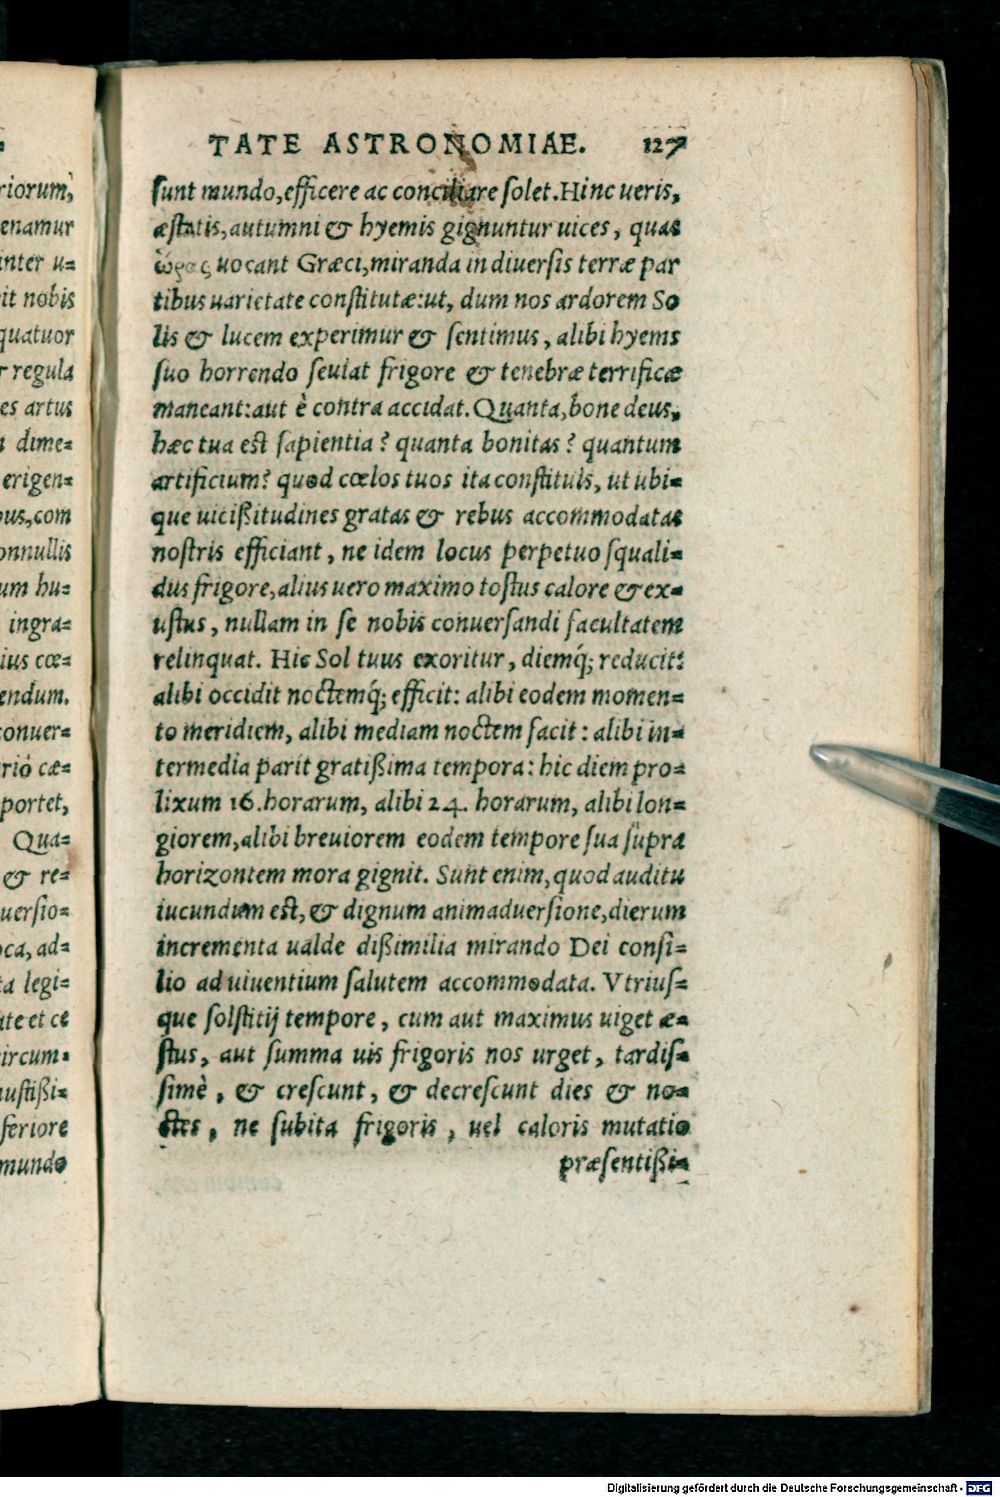 TATE ASTRONOMIAE. 127
riorum,
enamur
inter u-
it nobis
quatuor
r regula
es artus
n dime-
erigen-
ous, com
onnullis
um hu-
ingra-
ius cœ-
endum.
conuer-
rió cæ-
portet,
Qua-
& re-
uersio-
oca, ad-
ta legi-
ate et ce
ircum-
iustißi-
feriore
mundo
sunt mundo, efficere ac conciliare solet. Hinc ueris,
æstatis, autumni & hyemis gignuntur uices, quas
ὥρας uocant Græci, miranda in diuersis terræ par
tibus uarietate constitutæ: ut, dum nos ardorem So
lis & lucem experimur & sentimus, alibi hyems
suo horrendo seuiat frigore & tenebræ terrificæ
maneant: aut è contra accidat. Quanta, bone deus,
hæc tua est sapientia? quanta bonitas? quantum
artificium? quod cœlos tuos ita constituis, ut ubi-
que uicißitudines gratas & rebus accommodatas
nostris efficiant, ne idem locus perpetuo squali-
dus frigore, alius uero maximo tostus calore & ex-
ustus, nullam in se nobis conuersandi facultatem
relinquat. Hic Sol tuus exoritur, diemq́; reducit:
alibi occidit noctemq́; efficit: alibi eodem momen-
to meridiem, alibi mediam noctem facit: alibi in-
termedia parit gratißima tempora: hic diem pro-
lixum 16. horarum, alibi 24. horarum, alibi lon-
giorem, alibi breuiorem eodem tempore sua supra
horizontem mora gignit. Sunt enim, quod auditu
iucundum est, & dignum animaduersione, dierum
incrementa ualde dißimilia mirando Dei consi-
lio ad uiuentium salutem accommodata. Vtrius-
que solstitij tempore, cum aut maximus uiget æ-
stus, aut summa uis frigoris nos urget, tardis-
simè, & crescunt, & decrescunt dies & no-
ctes, ne subita frigoris, uel caloris mutatio
præsentißi-
Digitalisierung gefördert durch die Deutsche Forschungsgemeinschaft - DFG